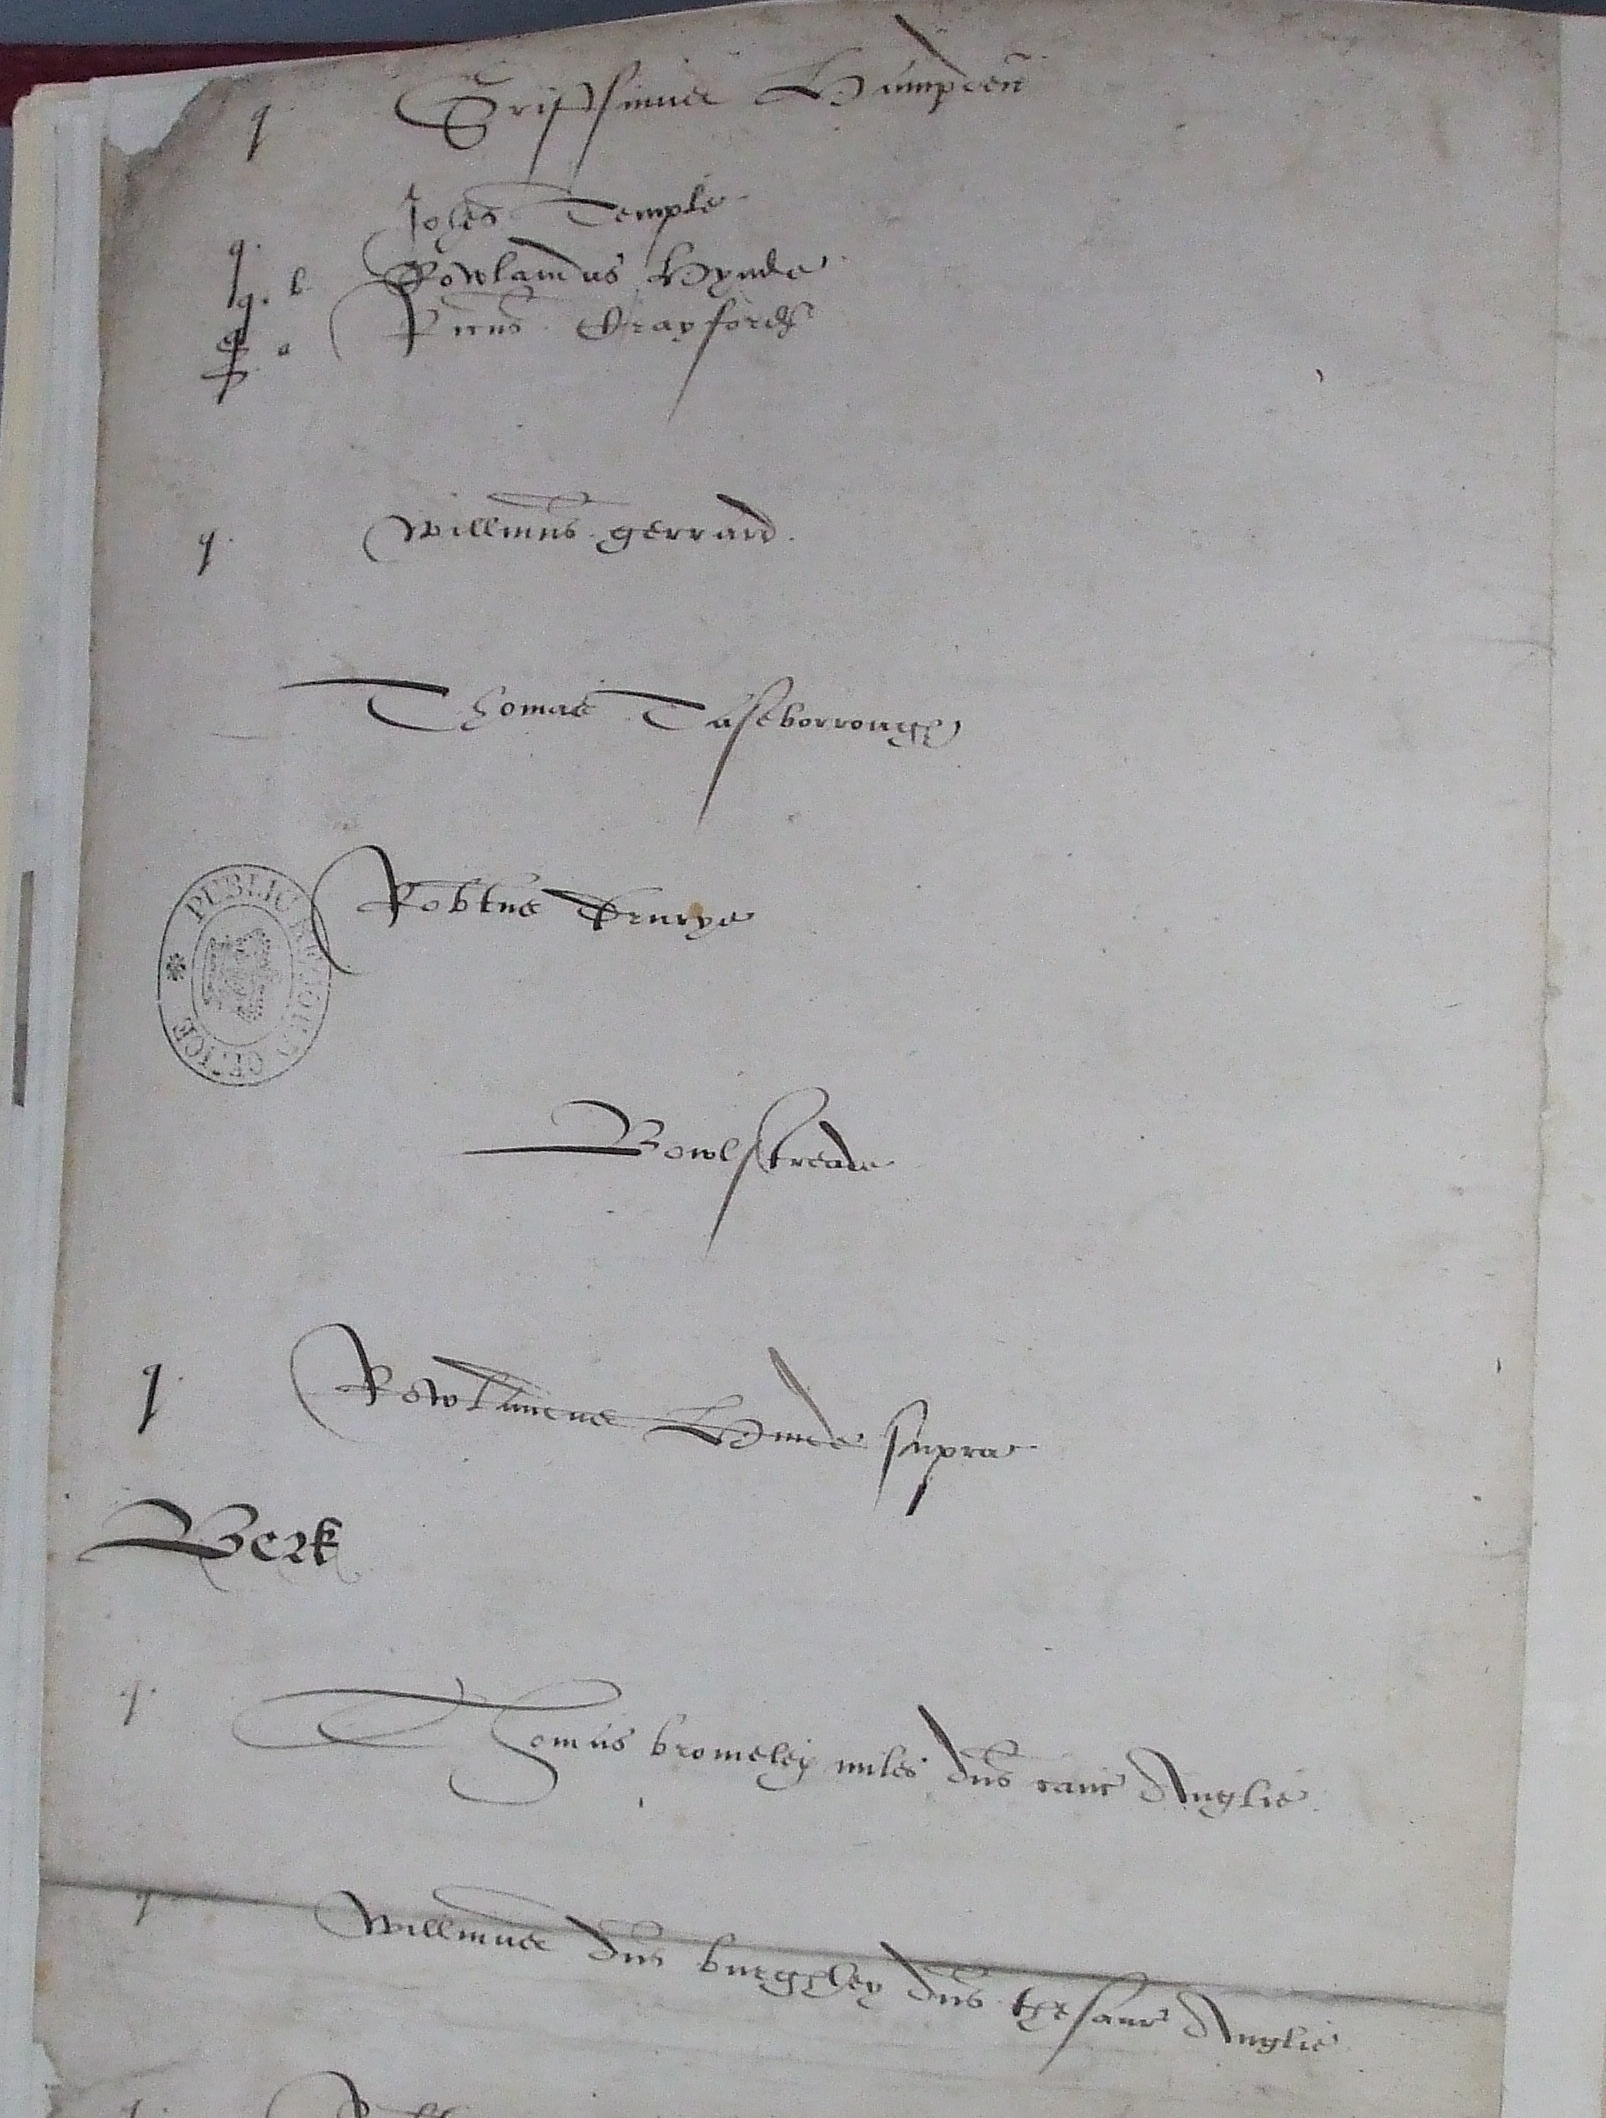 q Griffinus Hampden
Johes Temple
q
q. b Rowlandus Hynde
q a Ricus Crayford
Willmus gerrard.
q.
Thomas Taseborrough
Robtus Drurye
PUBLIC RECORD OFFICE
Bowlstreade
q Rowlandus Hinde supra
Berk
q. Thomas bromeley miles dns canc Anglie
q Willmus dns burghley dns thesaur Anglie